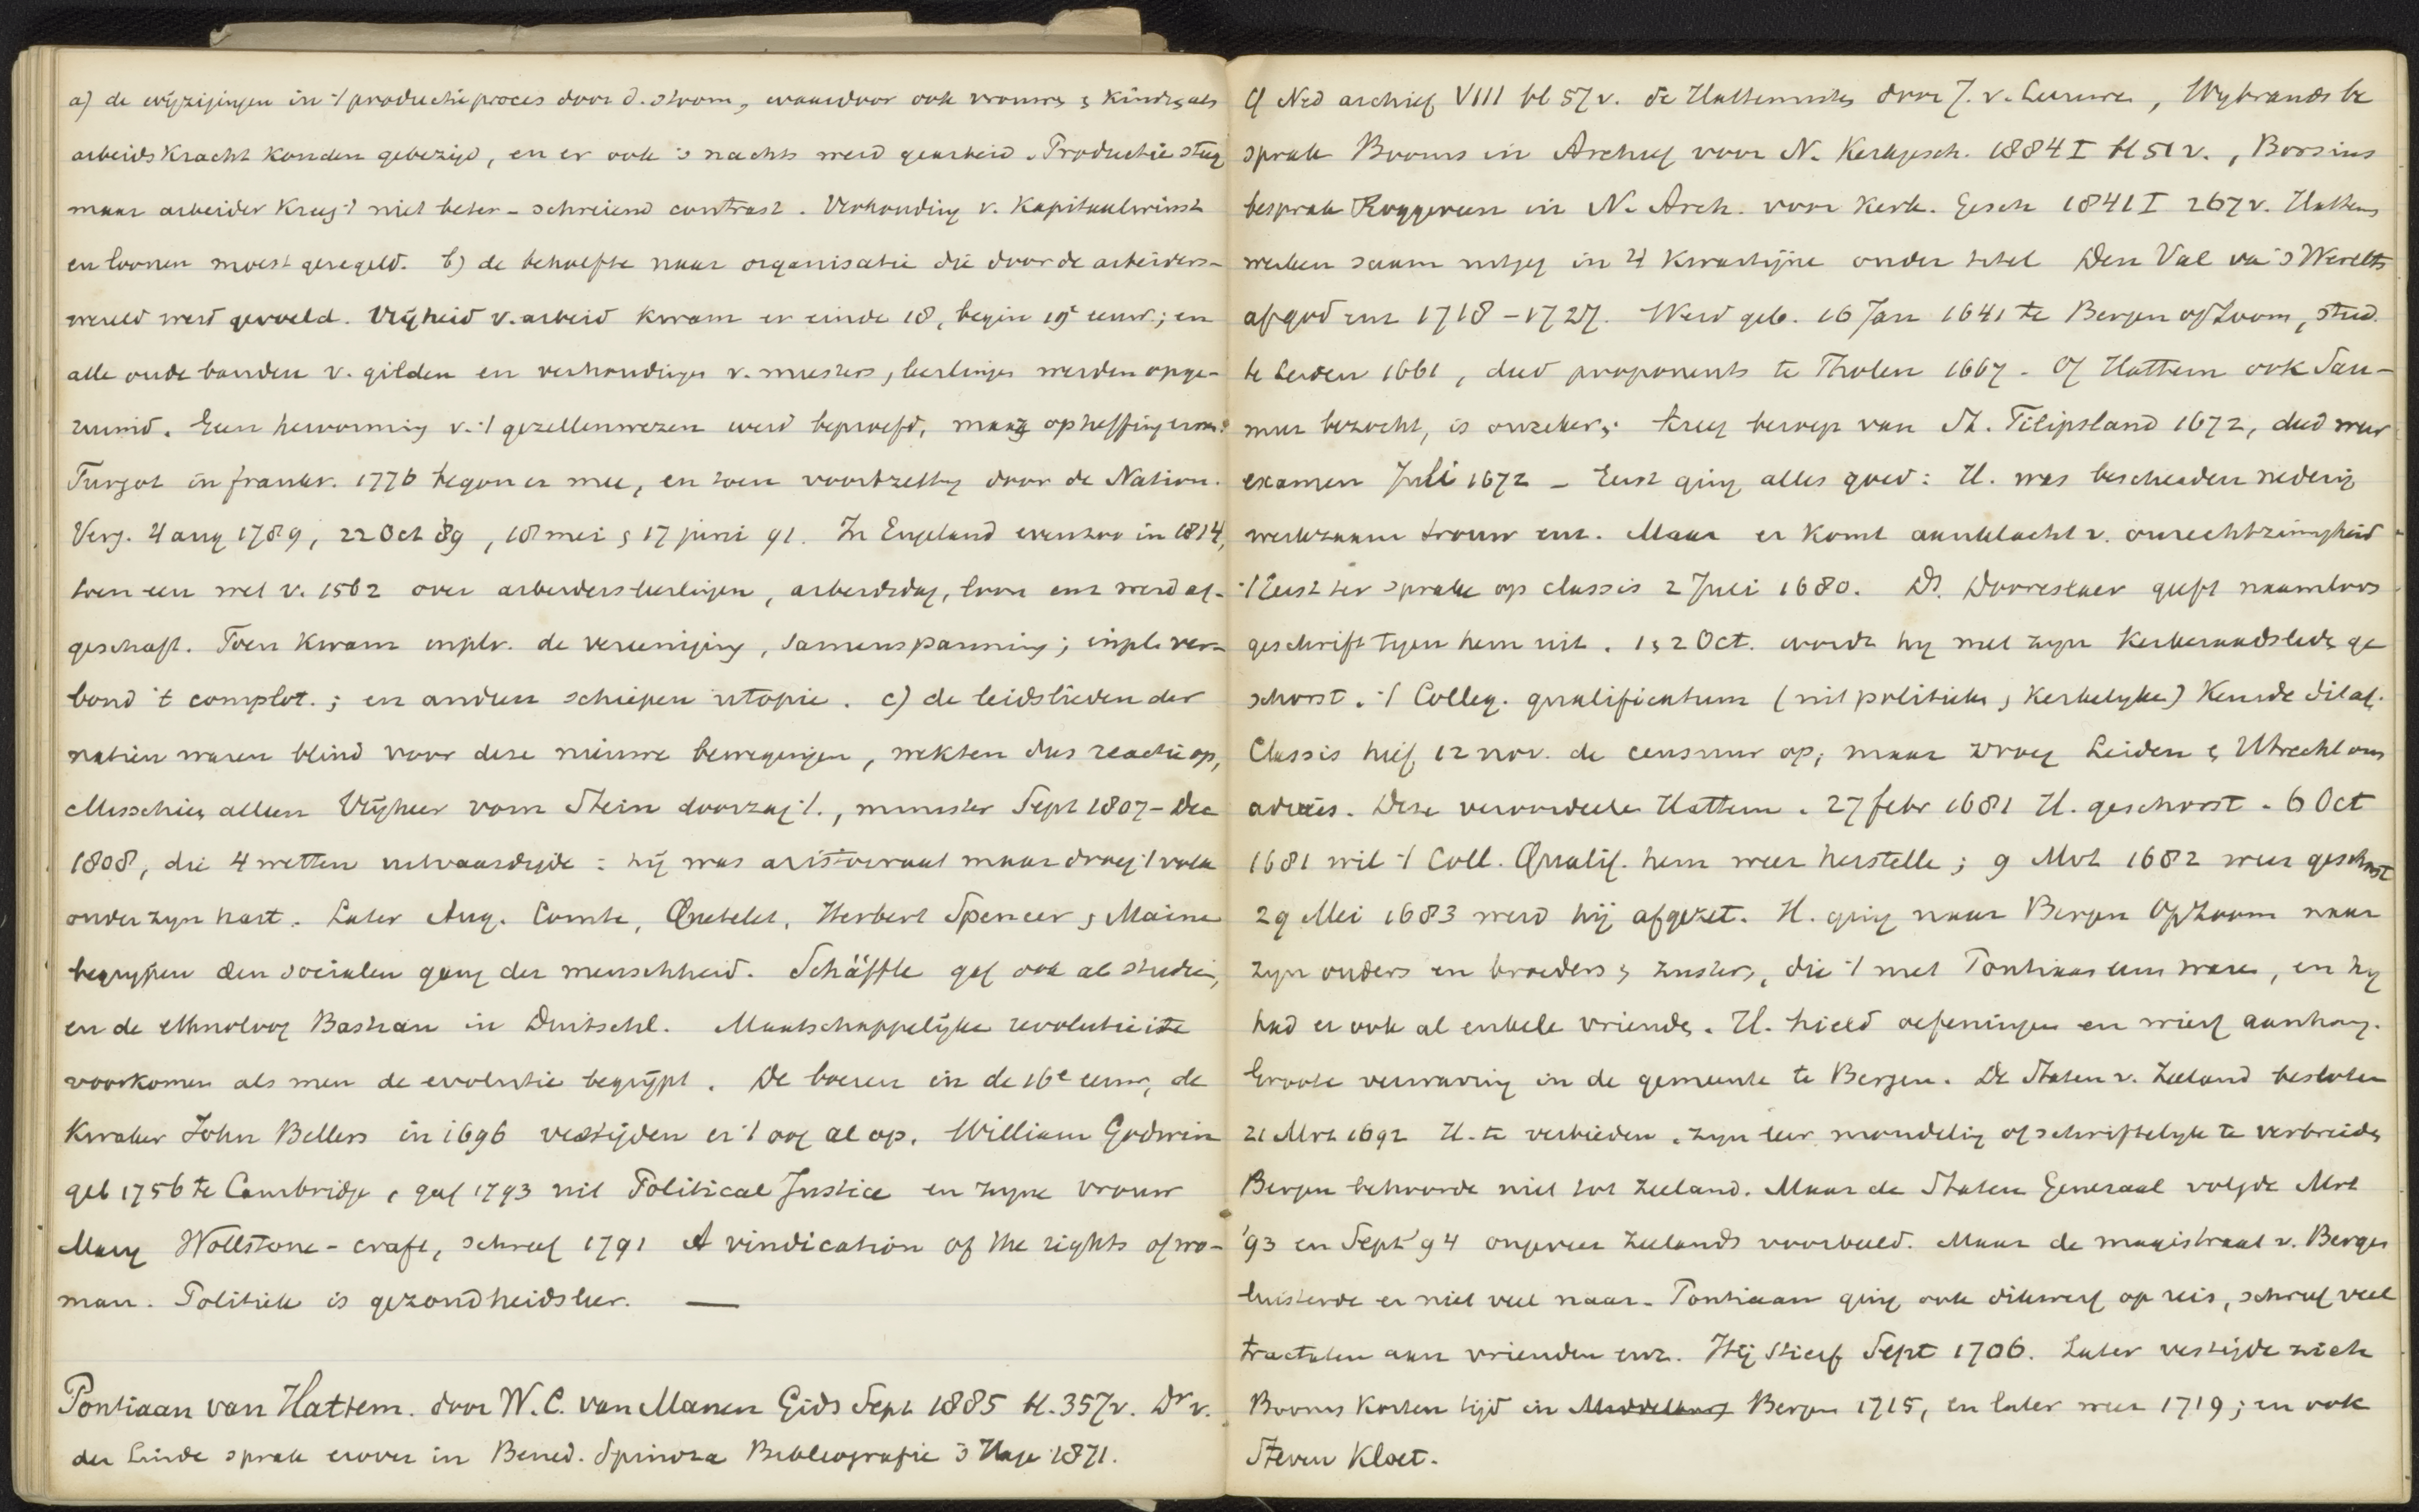 a) de wijzigingen in 't productieproces door d. stoom, waardoor ook vrouwen & kinders als
arbeidskracht konden gebezigd, en er ook 's nachts werd gearbeid. Productie steeg
maar arbeider kreeg 't niet beter - schreiend contrast. Verhouding v. kapitaalwinst
en loonen moest geregeld. b) de behoefte naar organisatie die door de arbeiders-
wereld werd gevoeld. Vrijheid v. arbeid kwam er einde 18, begin 19e eeuw; en
alle oude banden v. gilden en verhoudingen v. meesters, leerlingen werden opge-
ruimd. Een hervorming v. 't gezellenwezen werd beproefd, maar opheffing
Turgot in frankr. 1776 begon er mee, en toen voortzetting door de Nation.
Verg. 4 aug 1789, 22 Oct 89, 18 mei & 17 juni 91. In Engeland evenzoo in 1814,
toen een wet v. 1562 over arbeidersleerlingen, arbeidsdag, loon enz werd af-
geschaft. Toen kwam inplv. de vereeniging, samenspanning; inpl. ver-
bond 't complot.; en andere schiepen utopie. c) de leidslieden der
natien waren blind voor deze nieuwe bewegingen, wekten dus reactie op,
Misschien alleen Vrijheer vom Stein doorzag 't., minister Sept 1807 - Dec
1808, die 4 wetten uitvaardigde : hij was aristocraat maar droeg 't volk
onder zijn hart. Later Aug. Comte, Quetelet, Herbert Spencer & Maine
begrypen den socialen gang der menschheid. Schäffle gaf ook al studien,
en de ethnoloog Bastian in Duitschl. Maatschappelijke revolutie is te
voorkomen als men de evolutie begrijpt. De boeren in de 16e eeuw, de
Kwaker John Bellers in 1696 vestigden er 't oog al op. William Godwin
geb 1756 te Cambridge, gaf 1793 uit Political Justice en zyne vrouw
Mary Wollstone-craft, schreef 1791 A vindication of the rights of wo-
man. Politiek is gezondheidsleer. —
Pontiaan van Hattem. door W.C. van Manen Gids Sept 1885 bl. 357v. Dr v.
der Linde sprak erover in Bened. Spinoza Bibliografie 's Hage 1871.
Cf Ned archief VIII bl 57v. de Hattemisten door J. v. Leeuwen, Wybrands be
sprak Booms in Archief voor N. Kerkgesch. 1884 I bl 51 v., Borsius
besprak Roggeveen in N. Arch. voor Kerk. Gesch 1841 I 267v. Hattems
werken saam uitgeg in 4 kwartijne onder titel Den Val va 's Werelts
afgod enz 1718-1727. Werd geb. 16 Jan 1641 te Bergen opZoom, stud.
te Leiden 1661, deed proponents te Tholen 1667. Of Hattem ook Sau-
mur bezocht, is onzeker; kreeg beroep van St. Filipsland 1672, deed weer
examen Juli 1672 - Eerst ging alles goed : H. was bescheiden nederig
werkzaam trouw enz. Maar er komt aanklacht v. onrechtzinnigheid
't Eerst ter sprake op classis 2 Juli 1680. Ds. Dorreslaer geeft naamloos
geschrift tegen hem uit. 1 & 2 Oct. wordt hy met zyn kerkeraadsleds ge
schorst. 't Colleg. qualificatum (uit politieke & kerkelyke) keurde dit af.
Classis hief 12 nov. de censuur op; maar vroeg Leiden & Utrecht om
advies. Deze veroordeelde Hattem. 27 febr 1681 H. geschorst. 6 Oct
1681 wil 't Coll. Qualif. hem weer herstelle; 9 Mrt 1682 weer geschorst
29 Mei 1683 werd hij afgezet. H. ging naar Bergen OpZoom naar
zyn ouders en broeders & zusters, die 't met Pontiaan eens waren, en hy
had er ook al enkele vrienden. H. hield oefeningen en wierf aanhang.
Groote verwarring in de gemeente te Bergen. De Staten v. Zeeland besloten
21 Mrt 1692 H. te verbieden zyn leer mondeling of schriftelyk te verbreiden
Bergen behoorde niet tot Zeeland. Maar de Staten Generaal volgde Mrt
'93 en Sept '94 ongeveer Zeelands voorbeeld. Maar de magistraat v. Bergen
luisterde er niet veel naar. Pontiaan ging ook dikwerf op reis, schreef veel
tractaten aan vrienden enz. Hij stierf Sept 1706. Later vestigde zich
Booms korten tijd in Middelburg Bergen 1715, en later weer 1719; en ook
Steven Kloet.